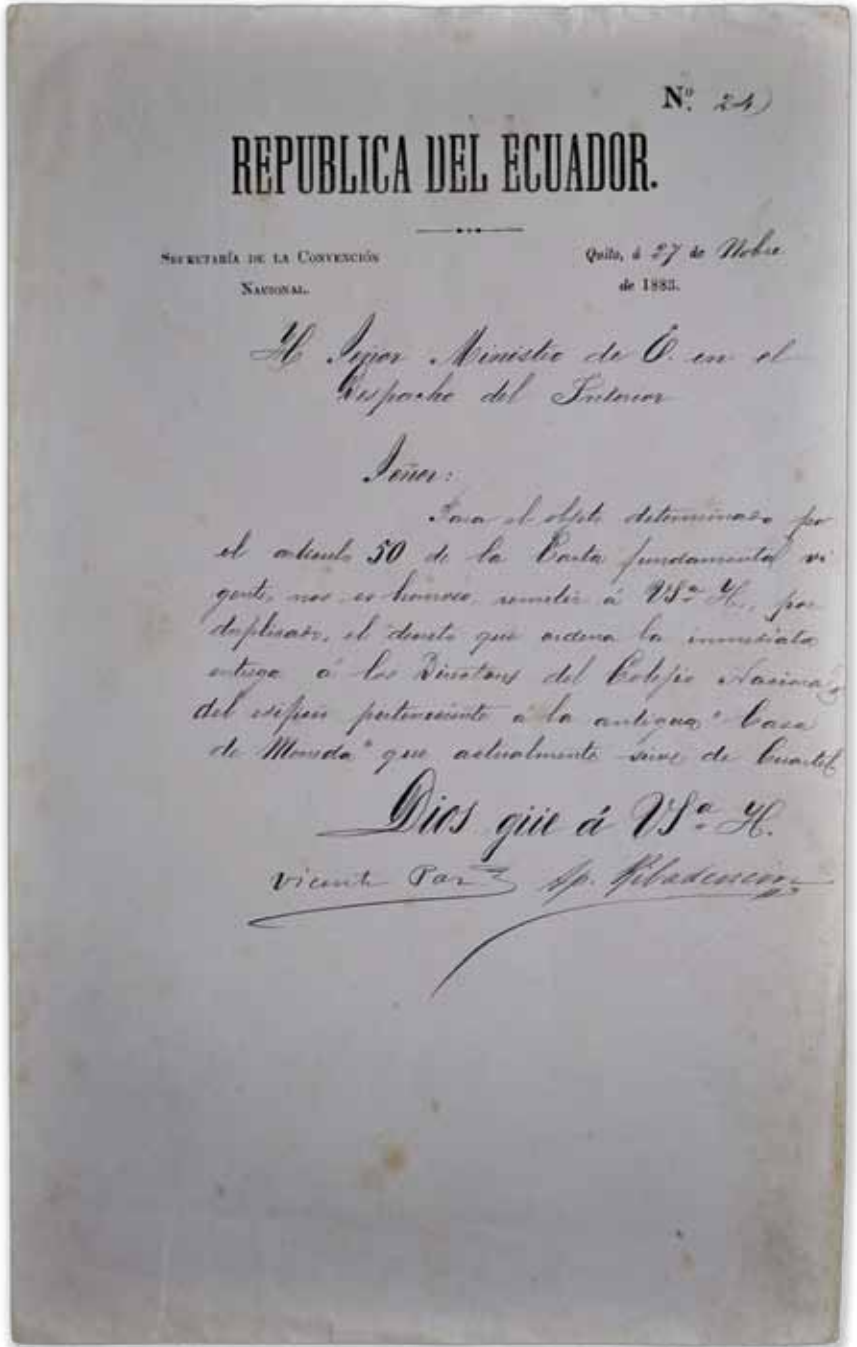 Nº. 24)
REPUBLICA DEL ECUADOR.
SECRETARÍA DE LA CONVENCIÓN
NACIONAL.
Quito, á 27 de Nobre
de 1883.
H. Señor Ministro de E. en el
Despacho del Interior
Señor:
Para el objeto determinado por
el artículo 50 de la Carta fundamental vi
gente, nos es honroso remitir á VSª H., por
duplicado, el decreto que ordena la inmediata
entrega á los Directores del Colejio Nacional
del edificio perteneciente á la antigua "Casa
de Moneda" que actualmente sirve de Cuartel
Dios güe á VSª H.
Vicente Paz Ap. Ribadeneira